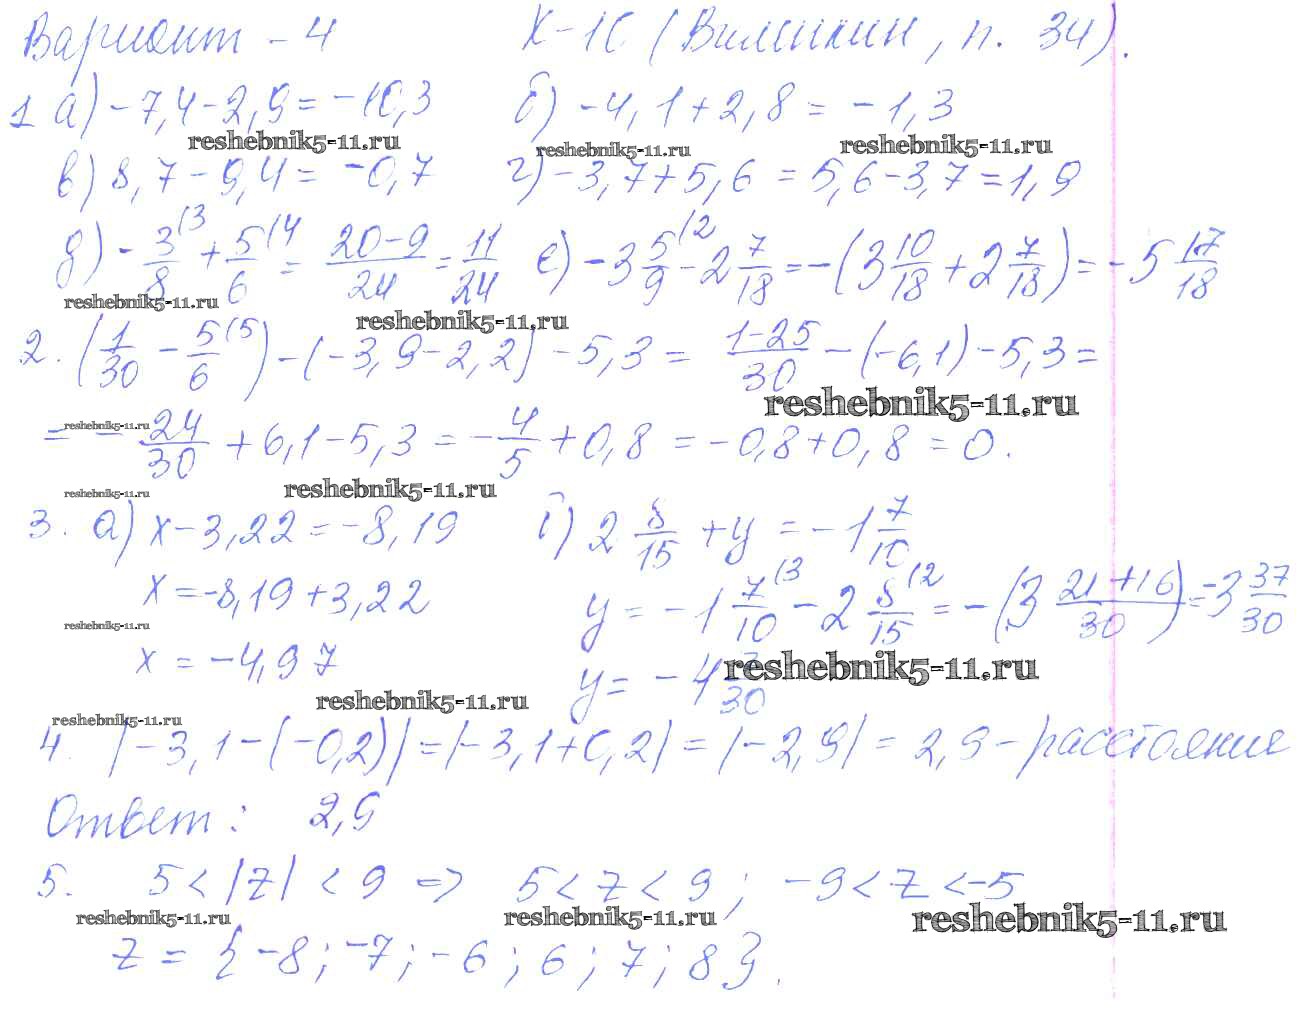 Вариант - 4 К-10 (Виленкин, п. 34).
1 а) -7,4-2,9=-10,3 б) -4,1+2,8=-1,3
reshebnik5-11.ru reshebnik5-11.ru reshebnik5-11.ru
в) 8,7-9,4=-0,7 г) -3,7+5,6=5,6-3,7=1,9
д) -3/8 (3 + 5/6 (4 = (20-9)/24 = 11/24 е) -3 5/9 (2 - 2 7/18 = -(3 10/18 + 2 7/18) = -5 17/18
reshebnik5-11.ru reshebnik5-11.ru
2. (1/30 - 5/6 (5) - (-3,9-2,2) - 5,3 = (1-25)/30 - (-6,1) - 5,3 =
reshebnik5-11.ru
reshebnik5-11.ru
= - 24/30 + 6,1 - 5,3 = -4/5 + 0,8 = -0,8 + 0,8 = 0.
reshebnik5-11.ru reshebnik5-11.ru
3. а) x-3,22=-8,19 б) 2 8/15 + y = -1 7/10
x=-8,19+3,22 y = -1 7/10 (3 - 2 8/15 (2 = -(3 (21+16)/30) = -3 37/30
reshebnik5-11.ru
x = -4,97 y = -4 /30
reshebnik5-11.ru
reshebnik5-11.ru
reshebnik5-11.ru
4. |-3,1-(-0,2)| = |-3,1+0,2| = |-2,9| = 2,9 - расстояние
Ответ: 2,9
5. 5 < |z| < 9 => 5 < z < 9; -9 < z < -5
reshebnik5-11.ru reshebnik5-11.ru reshebnik5-11.ru
z = {-8; -7; -6; 6; 7; 8}.